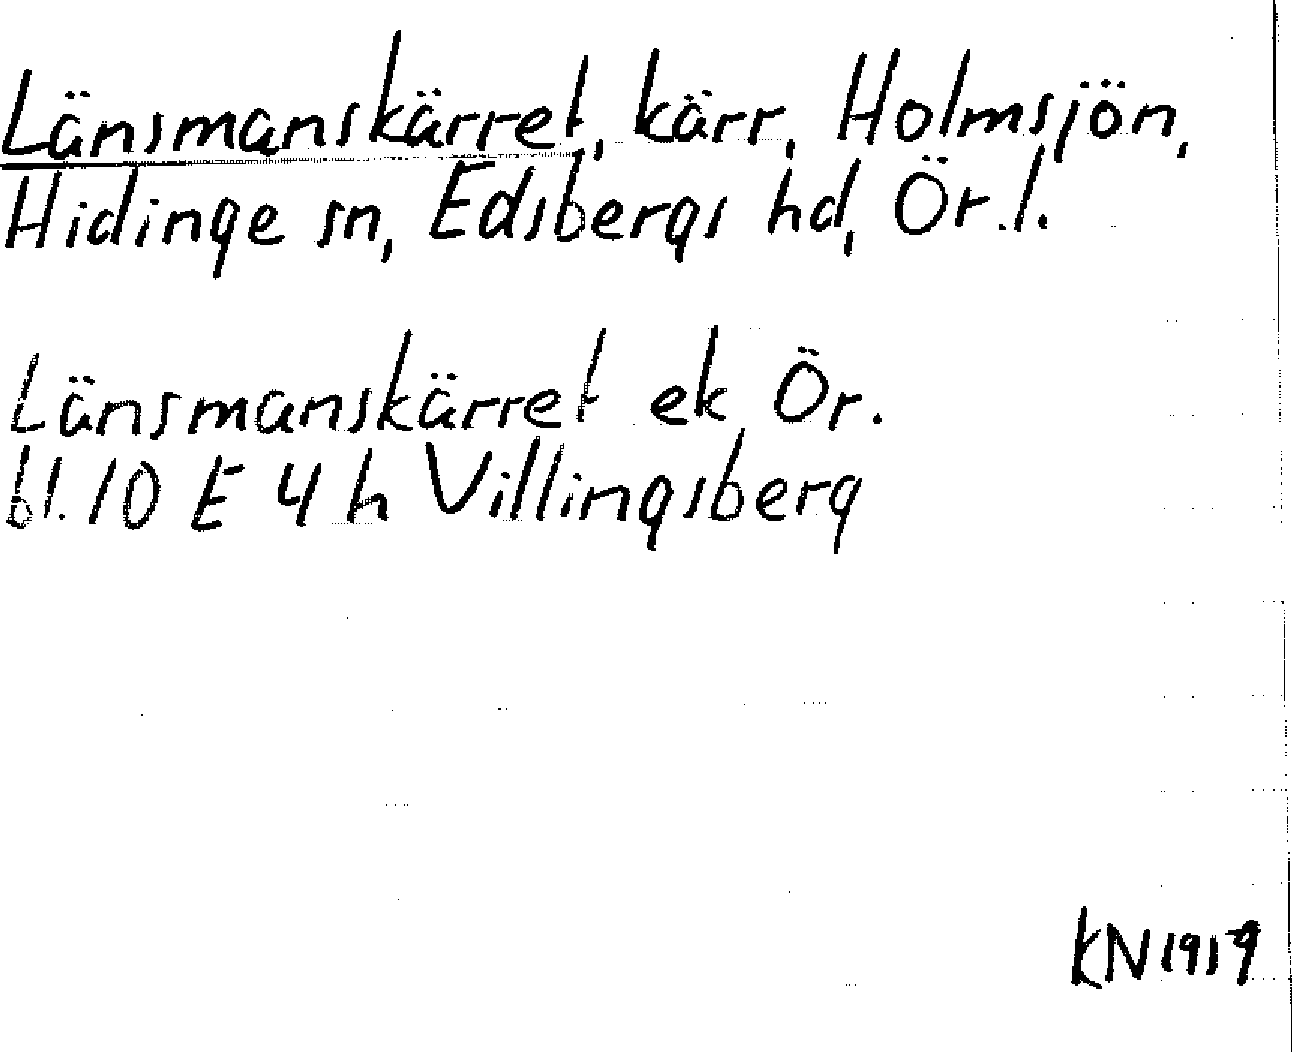 Länsmanskärret, kärr, Holmsjön,
Hidinge sn, Edsbergs hd, Ör.l.
Länsmanskärret ek Ör.
bl. 10 E 4 h Villingsberg
KN 1919